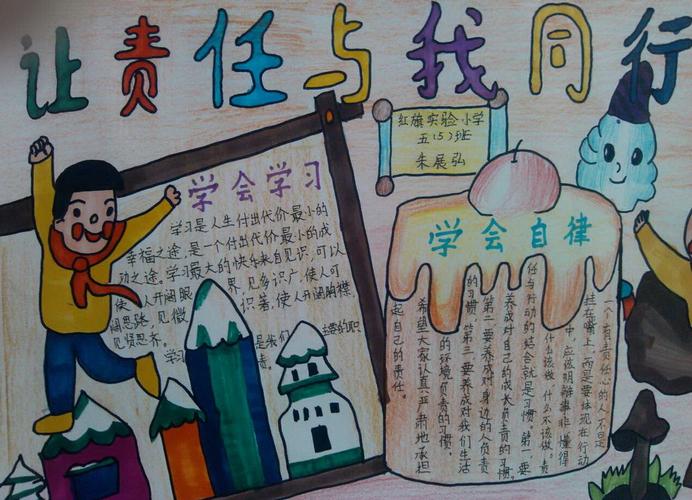 让责任与我同行
红旗实验小学
五(5)班
朱展弘
学会学习
学习是人生付出代价最小的
幸福之途,是一个付出代价最小的成
动之途。学习最大的快乐来自见识,可以
使人开阔眼界,见多识广,使人可
阔思路,见微识著,使人开阔胸襟,
见贤思齐。
学习是我们主要的职
责。
学会自律
一个有责任心的人不是
挂在嘴上,而是要体现在行动
中,应该明辨事非懂得
什么该做,什么不该做。责
任与行动的结合就是习惯,第一要
养成对自己的成长负责的习惯。
第二要养成对身边的人负责
的习惯,第三要养成对我们生活
的环境负责的习惯。
希望大家认真严肃地承担
起自己的责任。